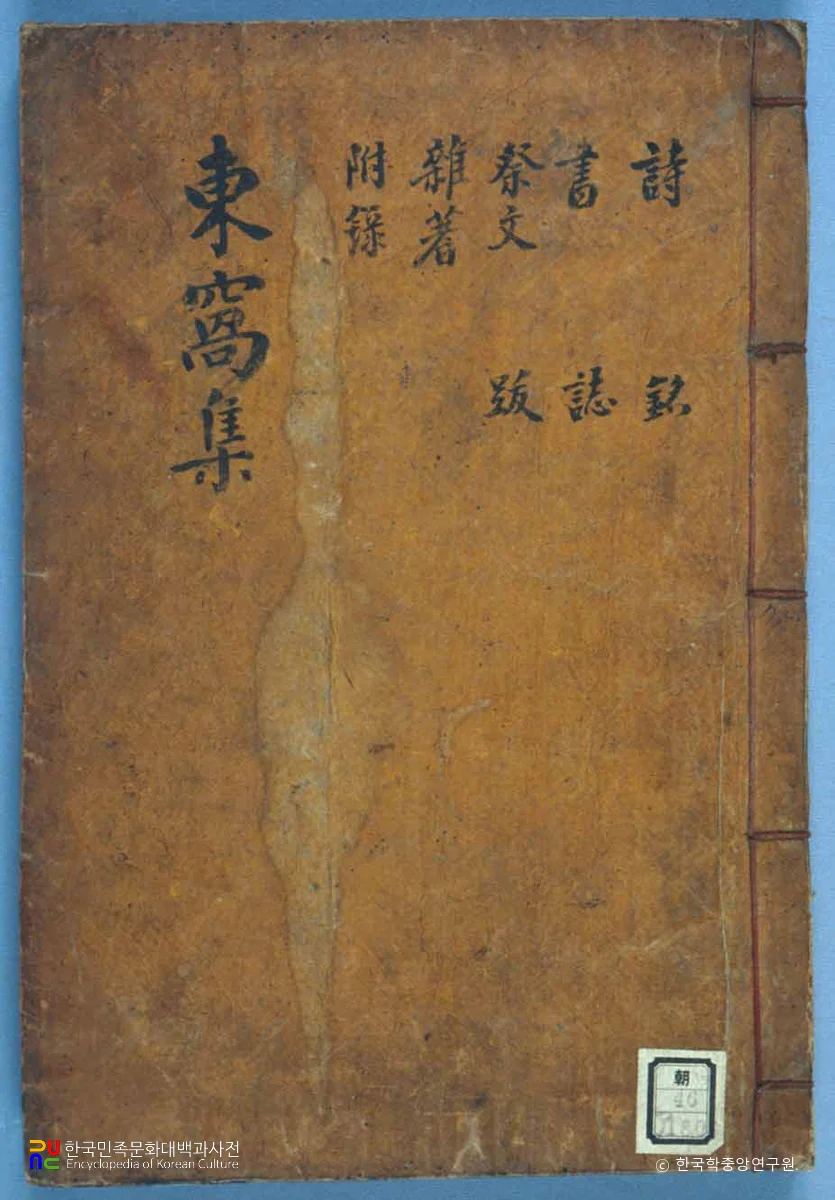 詩 銘
書 誌
祭文 跋
雜著
附錄
東窩集
朝
46
한국민족문화대백과사전
Encyclopedia of Korean Culture
© 한국학중앙연구원